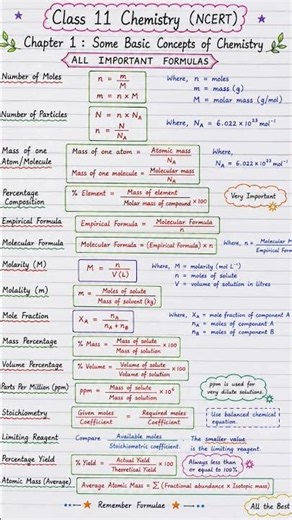 Class 11 Chemistry (NCERT)
Chapter 1 : Some Basic Concepts of Chemistry
ALL IMPORTANT FORMULAS
Number of Moles
n = m/M
m = n x M
Where, n = moles
m = mass (g)
M = molar mass (g/mol)
Number of Particles
N = n x NA
n = N/NA
Where, NA = 6.022 x 10²³ mol⁻¹
Mass of one Atom/Molecule
Mass of one atom = Atomic mass/NA
Mass of one molecule = Molecular mass/NA
Where,
NA = 6.022 x 10²³ mol⁻¹
Percentage Composition
% Element = Mass of element/Molar mass of compound x 100
Very Important
Empirical Formula
Empirical Formula = Molecular Formula/n
Molecular Formula
Molecular Formula = (Empirical Formula) x n
Where, n =
Molarity (M)
M = n/V(L)
Where, M = molarity (mol L⁻¹)
n = moles of solute
V = volume of solution in litres
Molality (m)
m = Moles of solute/Mass of solvent (kg)
Mole Fraction
XA = nA/nA + nB
Where, XA = mole fraction of component A
nA = moles of component A
nB = moles of component B
Mass Percentage
% Mass = Mass of solute/Mass of solution x 100
Volume Percentage
% Volume = Volume of solute/Volume of solution x 100
Parts Per Million (ppm)
ppm = Mass of solute/Mass of solution x 10⁶
ppm is used for
very dilute solutions
Stoichiometry
Given moles/Coefficient = Required moles/Coefficient
Use balanced chemical
equation.
Limiting Reagent
Compare Available moles/Stoichiometric coefficient.
The smaller value
is the limiting reagent.
Percentage Yield
% Yield = Actual Yield/Theoretical Yield x 100
Always less than
or equal to 100%
Atomic Mass (Average)
Average Atomic Mass = Σ (Fractional abundance x Isotopic mass)
Remember Formulae
All the Best